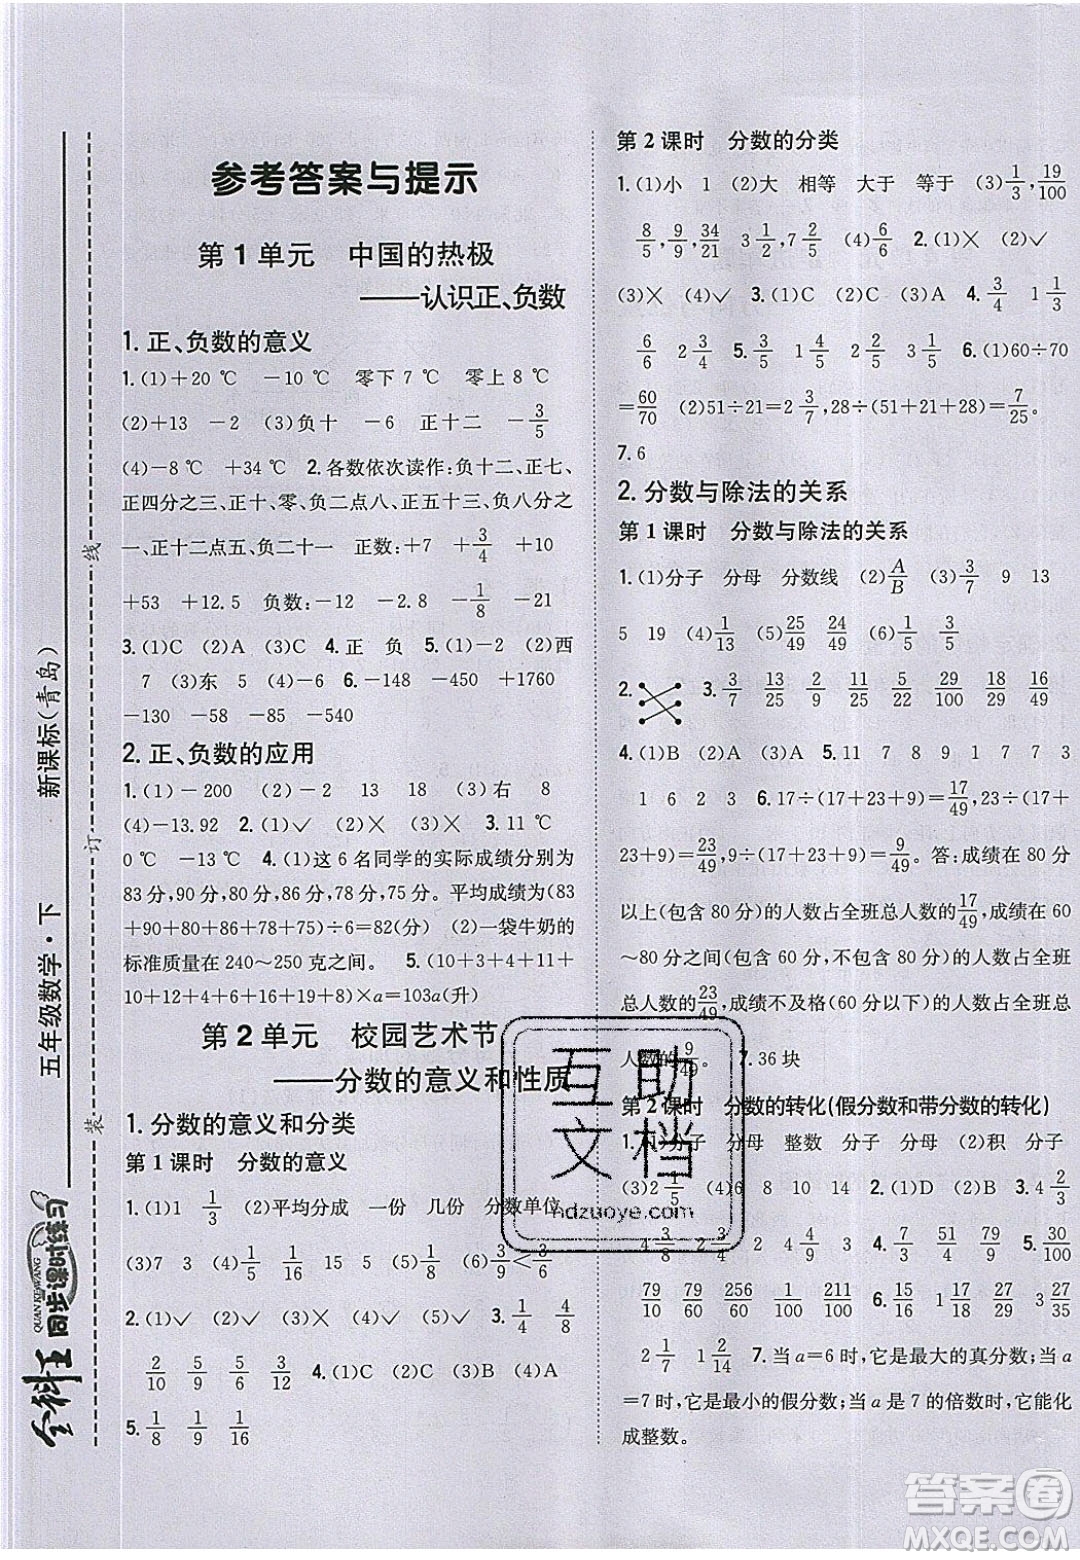 参考答案与提示
第1单元 中国的热极
——认识正、负数
1. 正、负数的意义
1.(1)+20 ℃ −10 ℃ 零下 7 ℃ 零上 8 ℃
(2)+13 −2 (3)负十 −6 正十 −3/5
(4)−8 ℃ +34 ℃ 2.各数依次读作:负十二、正七、
正四分之三、正十、零、负二点八、正五十三、负八分之
一、正十二点五、负二十一 正数:+7 +3/4 +10
+53 +12.5 负数:−12 −2.8 −1/8 −21
3.(1)C (2)A (3)C 4.正 负 5.(1)B (2)西
7 (3)东 5 (4)−6 6.−148 −450 +1760
−130 −58 −85 −540
2. 正、负数的应用
1.(1)−200 (2)−2 13 18 (3)右 8
(4)−13.92 2.(1)✓ (2)× (3)× 3.11 ℃
0 ℃ −15 ℃ 4.(1)这 6 名同学的实际成绩分别为
83 分,90 分,80 分,86 分,78 分,75 分。平均成绩为(83
+90+80+86+78+75)÷6=82(分) (2)一袋牛奶的
标准质量在 240～250 克之间。 5.(10+3+4+11+
10+12+4+6+10+15+18)×a=103a(升)
第2单元 校园艺术节
——分数的意义和性质
1. 分数的意义和分类
第1课时 分数的意义
1.(1)1 1/3 (2)平均分成 一份 几份 分数单位
(3)7 3 (4)3/8 3/5 (5)1/8 1/9 3/8<3/6
2.(1)✓ (2)× (3)× (4)✓ (5)✓ 3.1/4 4/8
2/10 5/9 5/8 2/12 4.(1)A (2)C (3)B (4)A
5.1/8 1/9 1/16
第2课时 分数的分类
1.(1)小 1 (2)大 相等 大于 等于 (3)1/3,19/100
8/5,9/9,34/21 3 1/2,7 2/5 (4)6/6 2.(1)× (2)✓
(3)× (4)✓ 3.(1)C (2)C (3)A 4.3/4 1 1/3
6/6 2 3/4 5.3/5 1 4/5 2/5 1 2/5 6.(1)60÷70
=60/70 (2)51÷21=2 3/7,28÷(51+21+28)=7/25。
7.6
2. 分数与除法的关系
第1课时 分数与除法的关系
1.(1)分子 分母 分数线 (2)A/B (3)3/7 9 13
5 19 (4)1/13 (5)25/49 24/49 (6)1/5 1/15
2. 3.3/7 13/15 2/9 12/25 11/25 5/8 29/100 18/29 16/49
4.(1)B (2)A (3)A 5.11 7 8 9 1 7 7 3
1 6 2 3 6.17÷(17+23+9)=17/49,23÷(17+
23+9)=23/49,9÷(17+23+9)=9/49。答:成绩在 80 分
以上(包含 80 分)的人数占全班总人数的17/49,成绩在 60
～80 分之间(包含 60 分,不包含 80 分)的人数占全班
总人数的23/49,成绩不及格(60 分以下)的人数占全班总
人数的9/49。 7.36 块
第2课时 分数的转化(假分数和带分数的转化)
1. 分子 分母 整数 分子 分母 (2)积 分子
(3)2 1/5 (4)6 8 10 14 2.(1)A (2)A 3.4 2/3
4 3/8 2 3/4 4 4/9 4.7/3 17/4 51/5 79/9 5.30/100
79/10 79/60 256/100 1/100 211/100 6.15/16 17/28 27/29 27/35
2 1/7 1 2/14 7.当 a=6 时,它是最大的真分数;当 a
=7 时,它是最小的假分数;当 a 是 7 的倍数时,它能化
成整数。
五年级数学·下 新课标(青岛)
装 订 线
全科王
同步课时练习
QUAN KE WANG
互助文档
hdzuoye.com
答案圈
MXQE.COM